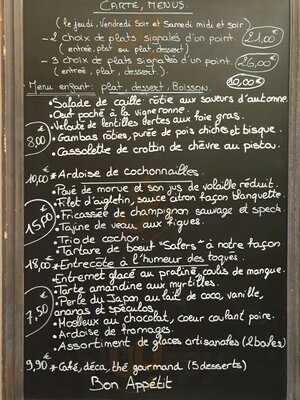 CARTE, MENUS
(le jeudi, Vendredi Soir et Samedi midi et soir)
- 2 choix de plats signalés d'un point. 21,00€
(entrée, plat ou plat, dessert)
- 3 choix de plats signalés d'un point. 26,00€
(entrée, plat, dessert).
Menu enfant: plat, dessert, Boisson. 10,00€
• Salade de caille rôtie aux saveurs d'automne.
• Œuf poché à la vigneronne.
• Velouté de lentilles vertes aux foie gras.
8,00€ • Gambas rôties, purée de pois chiches et bisque.
• Cassolette de crottin de chèvre au pistou.
10,00€ • Ardoise de cochonnailles.
• Pavé de morue et son jus de volaille réduit.
• Filet d'aiglefin, sauce citron façon blanquette.
15,00€ • Fricassée de champignon sauvage et speck.
• Tajine de veau aux figues.
• Trio de cochon.
• Tartare de boeuf "Salers" à notre façon
18,00€ • Entrecôte à l'humeur des toqués.
• Entremet glacé au praliné, coulis de mangue.
• Tarte amandine aux myrtilles.
7,50€ • Perle du Japon, au lait de coco, vanille,
ananas et spéculos.
• Moelleux au chocolat, coeur coulant poire.
• Ardoise de fromages.
• Assortiment de glaces artisanales (2 boules)
9,90€ • Café, déca, thé gourmand (5 desserts)
Bon Appétit